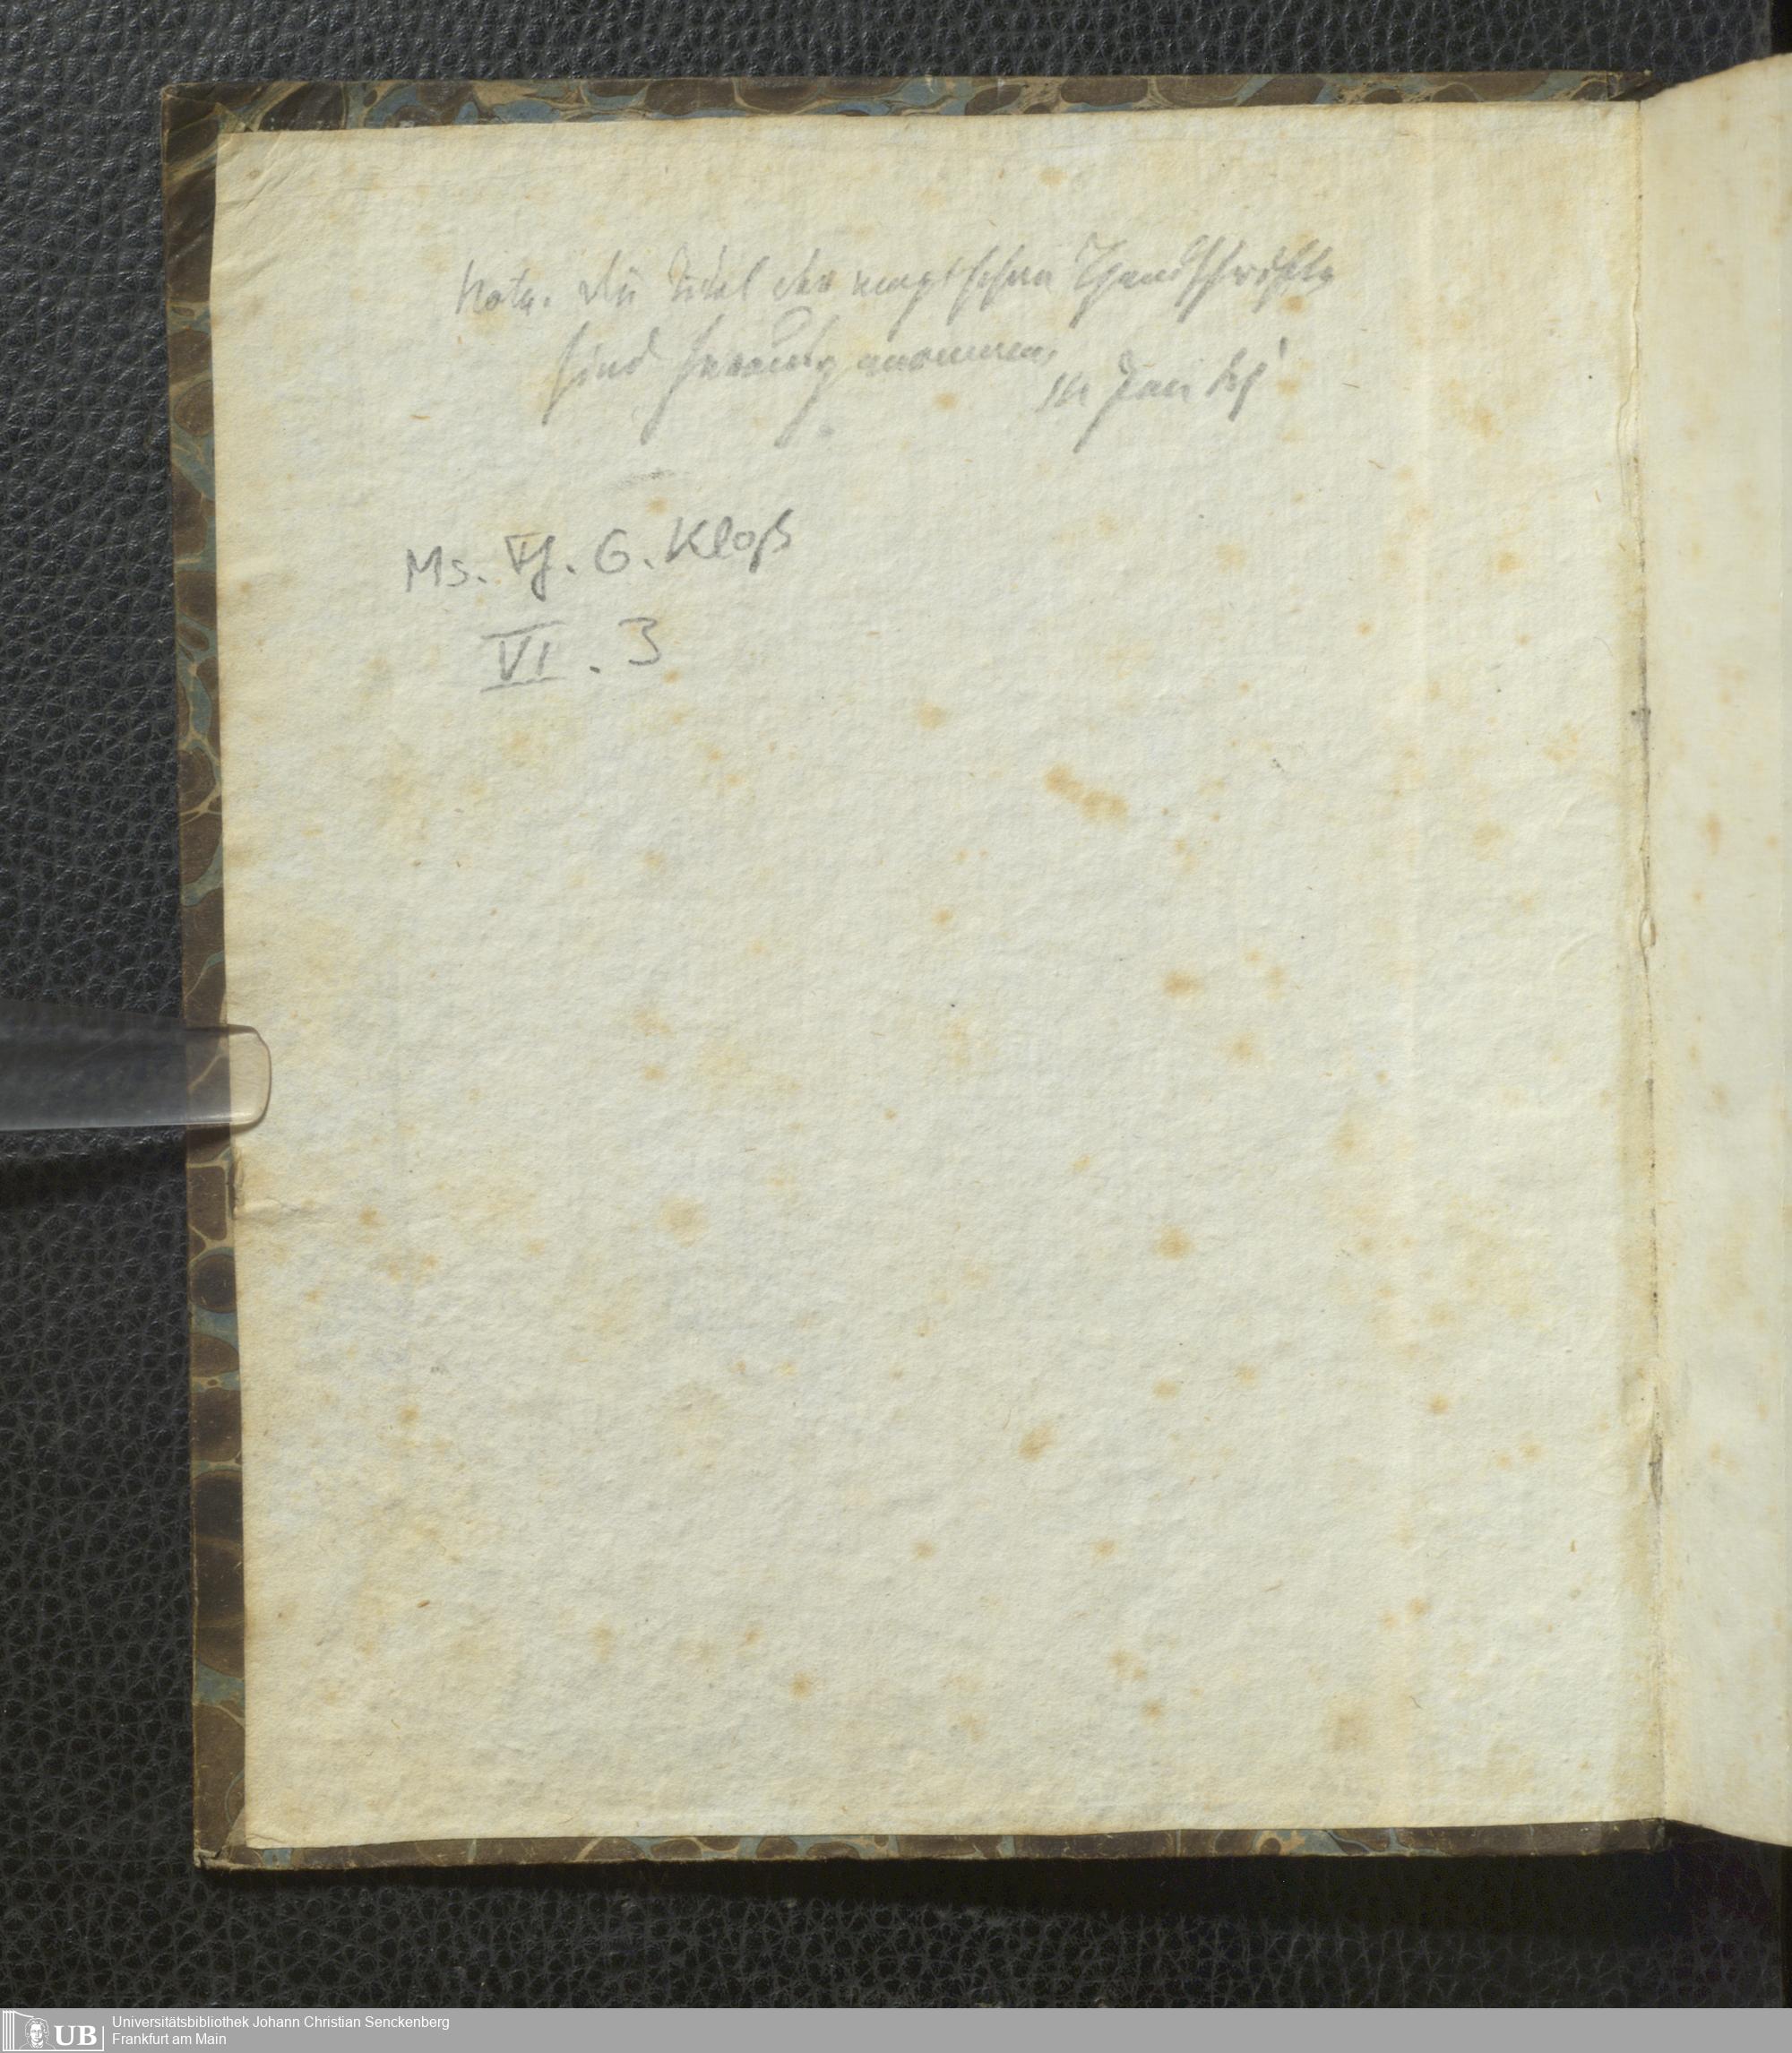 Nota. Die Titel der magischen Handschriften
sind
Ms. Ff. G. Kloß
VI. 3
UB
Universitätsbibliothek Johann Christian Senckenberg
Frankfurt am Main